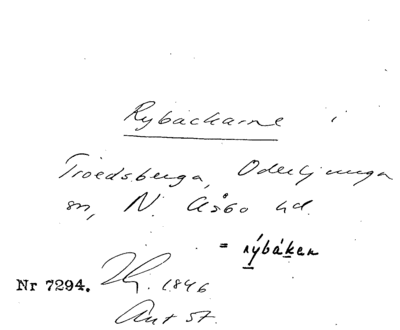 Rybackarne i
Troedsberga, Oderljunga
sn, N. Åsbo hd.
= rýbáken
Nr 7294. 1846
Ant St.